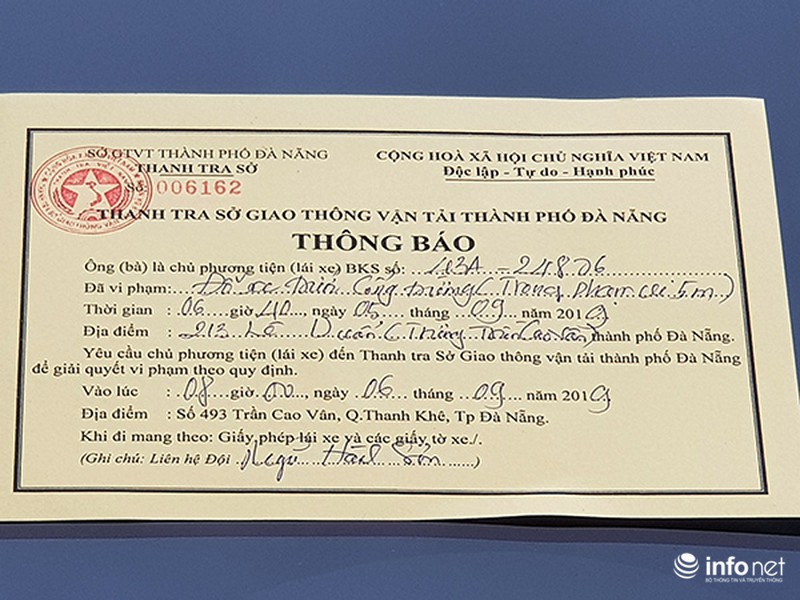 SỞ GTVT THÀNH PHỐ ĐÀ NẴNG
THANH TRA SỞ
Số: 006162
CỘNG HOÀ XÃ HỘI CHỦ NGHĨA VIỆT NAM
Độc lập - Tự do - Hạnh phúc
THANH TRA SỞ GIAO THÔNG VẬN TẢI THÀNH PHỐ ĐÀ NẴNG
THÔNG BÁO
Ông (bà) là chủ phương tiện (lái xe) BKS số: 43A - 248.06
Đã vi phạm: Đỗ xe trên cống (trong phạm vi 5m)
Thời gian : 06 giờ 40, ngày 05 tháng 09 năm 2019
Địa điểm : 213 Lê Duẩn thành phố Đà Nẵng.
Yêu cầu chủ phương tiện (lái xe) đến Thanh tra Sở Giao thông vận tải thành phố Đà Nẵng
để giải quyết vi phạm theo quy định.
Vào lúc : 08 giờ 00, ngày 06 tháng 09 năm 2019
Địa điểm : Số 493 Trần Cao Vân, Q.Thanh Khê, Tp Đà Nẵng.
Khi đi mang theo: Giấy phép lái xe và các giấy tờ xe./.
(Ghi chú: Liên hệ Đội Ngũ Hành Sơn)
infonet
BỘ THÔNG TIN VÀ TRUYỀN THÔNG